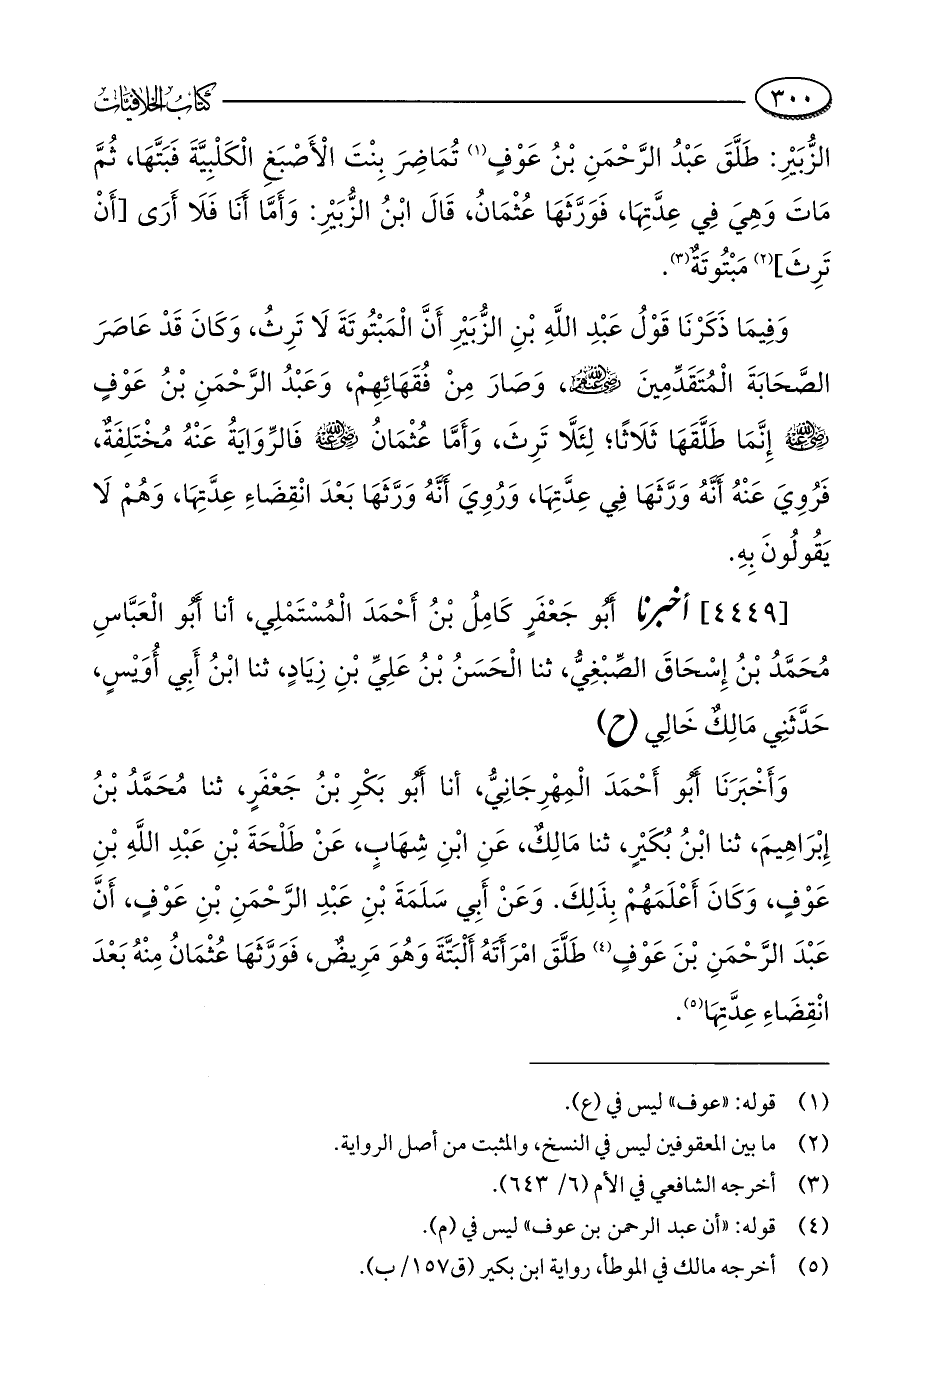 ٣٠٠ كتاب الخلافيات
الزُّبَيْرِ: طَلَّقَ عَبْدُ الرَّحْمَنِ بْنُ عَوْفٍ(١) تُمَاضِرَ بِنْتَ الْأَصْبَغِ الْكَلْبِيَّةَ فَبَتَّهَا، ثُمَّ
مَاتَ وَهِيَ فِي عِدَّتِهَا، فَوَرَّثَهَا عُثْمَانُ، قَالَ ابْنُ الزُّبَيْرِ: وَأَمَّا أَنَا فَلَا أَرَى [أَنْ
تَرِثَ](٢) مَبْتُوتَةٌ(٣).
وَفِيمَا ذَكَرْنَا قَوْلُ عَبْدِ اللَّهِ بْنِ الزُّبَيْرِ أَنَّ الْمَبْتُوتَةَ لَا تَرِثُ، وَكَانَ قَدْ عَاصَرَ
الصَّحَابَةَ الْمُتَقَدِّمِينَ رضي الله عنهم، وَصَارَ مِنْ فُقَهَائِهِمْ، وَعَبْدُ الرَّحْمَنِ بْنُ عَوْفٍ
رضي الله عنه إِنَّمَا طَلَّقَهَا ثَلَاثًا؛ لِئَلَّا تَرِثَ، وَأَمَّا عُثْمَانُ رضي الله عنه فَالرِّوَايَةُ عَنْهُ مُخْتَلِفَةٌ،
فَرُوِيَ عَنْهُ أَنَّهُ وَرَّثَهَا فِي عِدَّتِهَا، وَرُوِيَ أَنَّهُ وَرَّثَهَا بَعْدَ انْقِضَاءِ عِدَّتِهَا، وَهُمْ لَا
يَقُولُونَ بِهِ.
[٤٤٤٩] أخبرنا أَبُو جَعْفَرٍ كَامِلُ بْنُ أَحْمَدَ الْمُسْتَمْلِي، أنا أَبُو الْعَبَّاسِ
مُحَمَّدُ بْنُ إِسْحَاقَ الصِّبْغِيُّ، ثنا الْحَسَنُ بْنُ عَلِيِّ بْنِ زِيَادٍ، ثنا ابْنُ أَبِي أُوَيْسٍ،
حَدَّثَنِي مَالِكٌ خَالِي (ح)
وَأَخْبَرَنَا أَبُو أَحْمَدَ الْمِهْرِجَانِيُّ، أنا أَبُو بَكْرِ بْنُ جَعْفَرٍ، ثنا مُحَمَّدُ بْنُ
إِبْرَاهِيمَ، ثنا ابْنُ بُكَيْرٍ، ثنا مَالِكٌ، عَنِ ابْنِ شِهَابٍ، عَنْ طَلْحَةَ بْنِ عَبْدِ اللَّهِ بْنِ
عَوْفٍ، وَكَانَ أَعْلَمَهُمْ بِذَلِكَ. وَعَنْ أَبِي سَلَمَةَ بْنِ عَبْدِ الرَّحْمَنِ بْنِ عَوْفٍ، أَنَّ
عَبْدَ الرَّحْمَنِ بْنَ عَوْفٍ(٤) طَلَّقَ امْرَأَتَهُ أَلْبَتَّةَ وَهُوَ مَرِيضٌ، فَوَرَّثَهَا عُثْمَانُ مِنْهُ بَعْدَ
انْقِضَاءِ عِدَّتِهَا(٥).
(١) قوله: «عوف» ليس في (ع).
(٢) ما بين المعقوفين ليس في النسخ، والمثبت من أصل الرواية.
(٣) أخرجه الشافعي في الأم (٦/ ٦٤٣).
(٤) قوله: «أن عبد الرحمن بن عوف» ليس في (م).
(٥) أخرجه مالك في الموطأ، رواية ابن بكير (ق١٥٧/ ب).